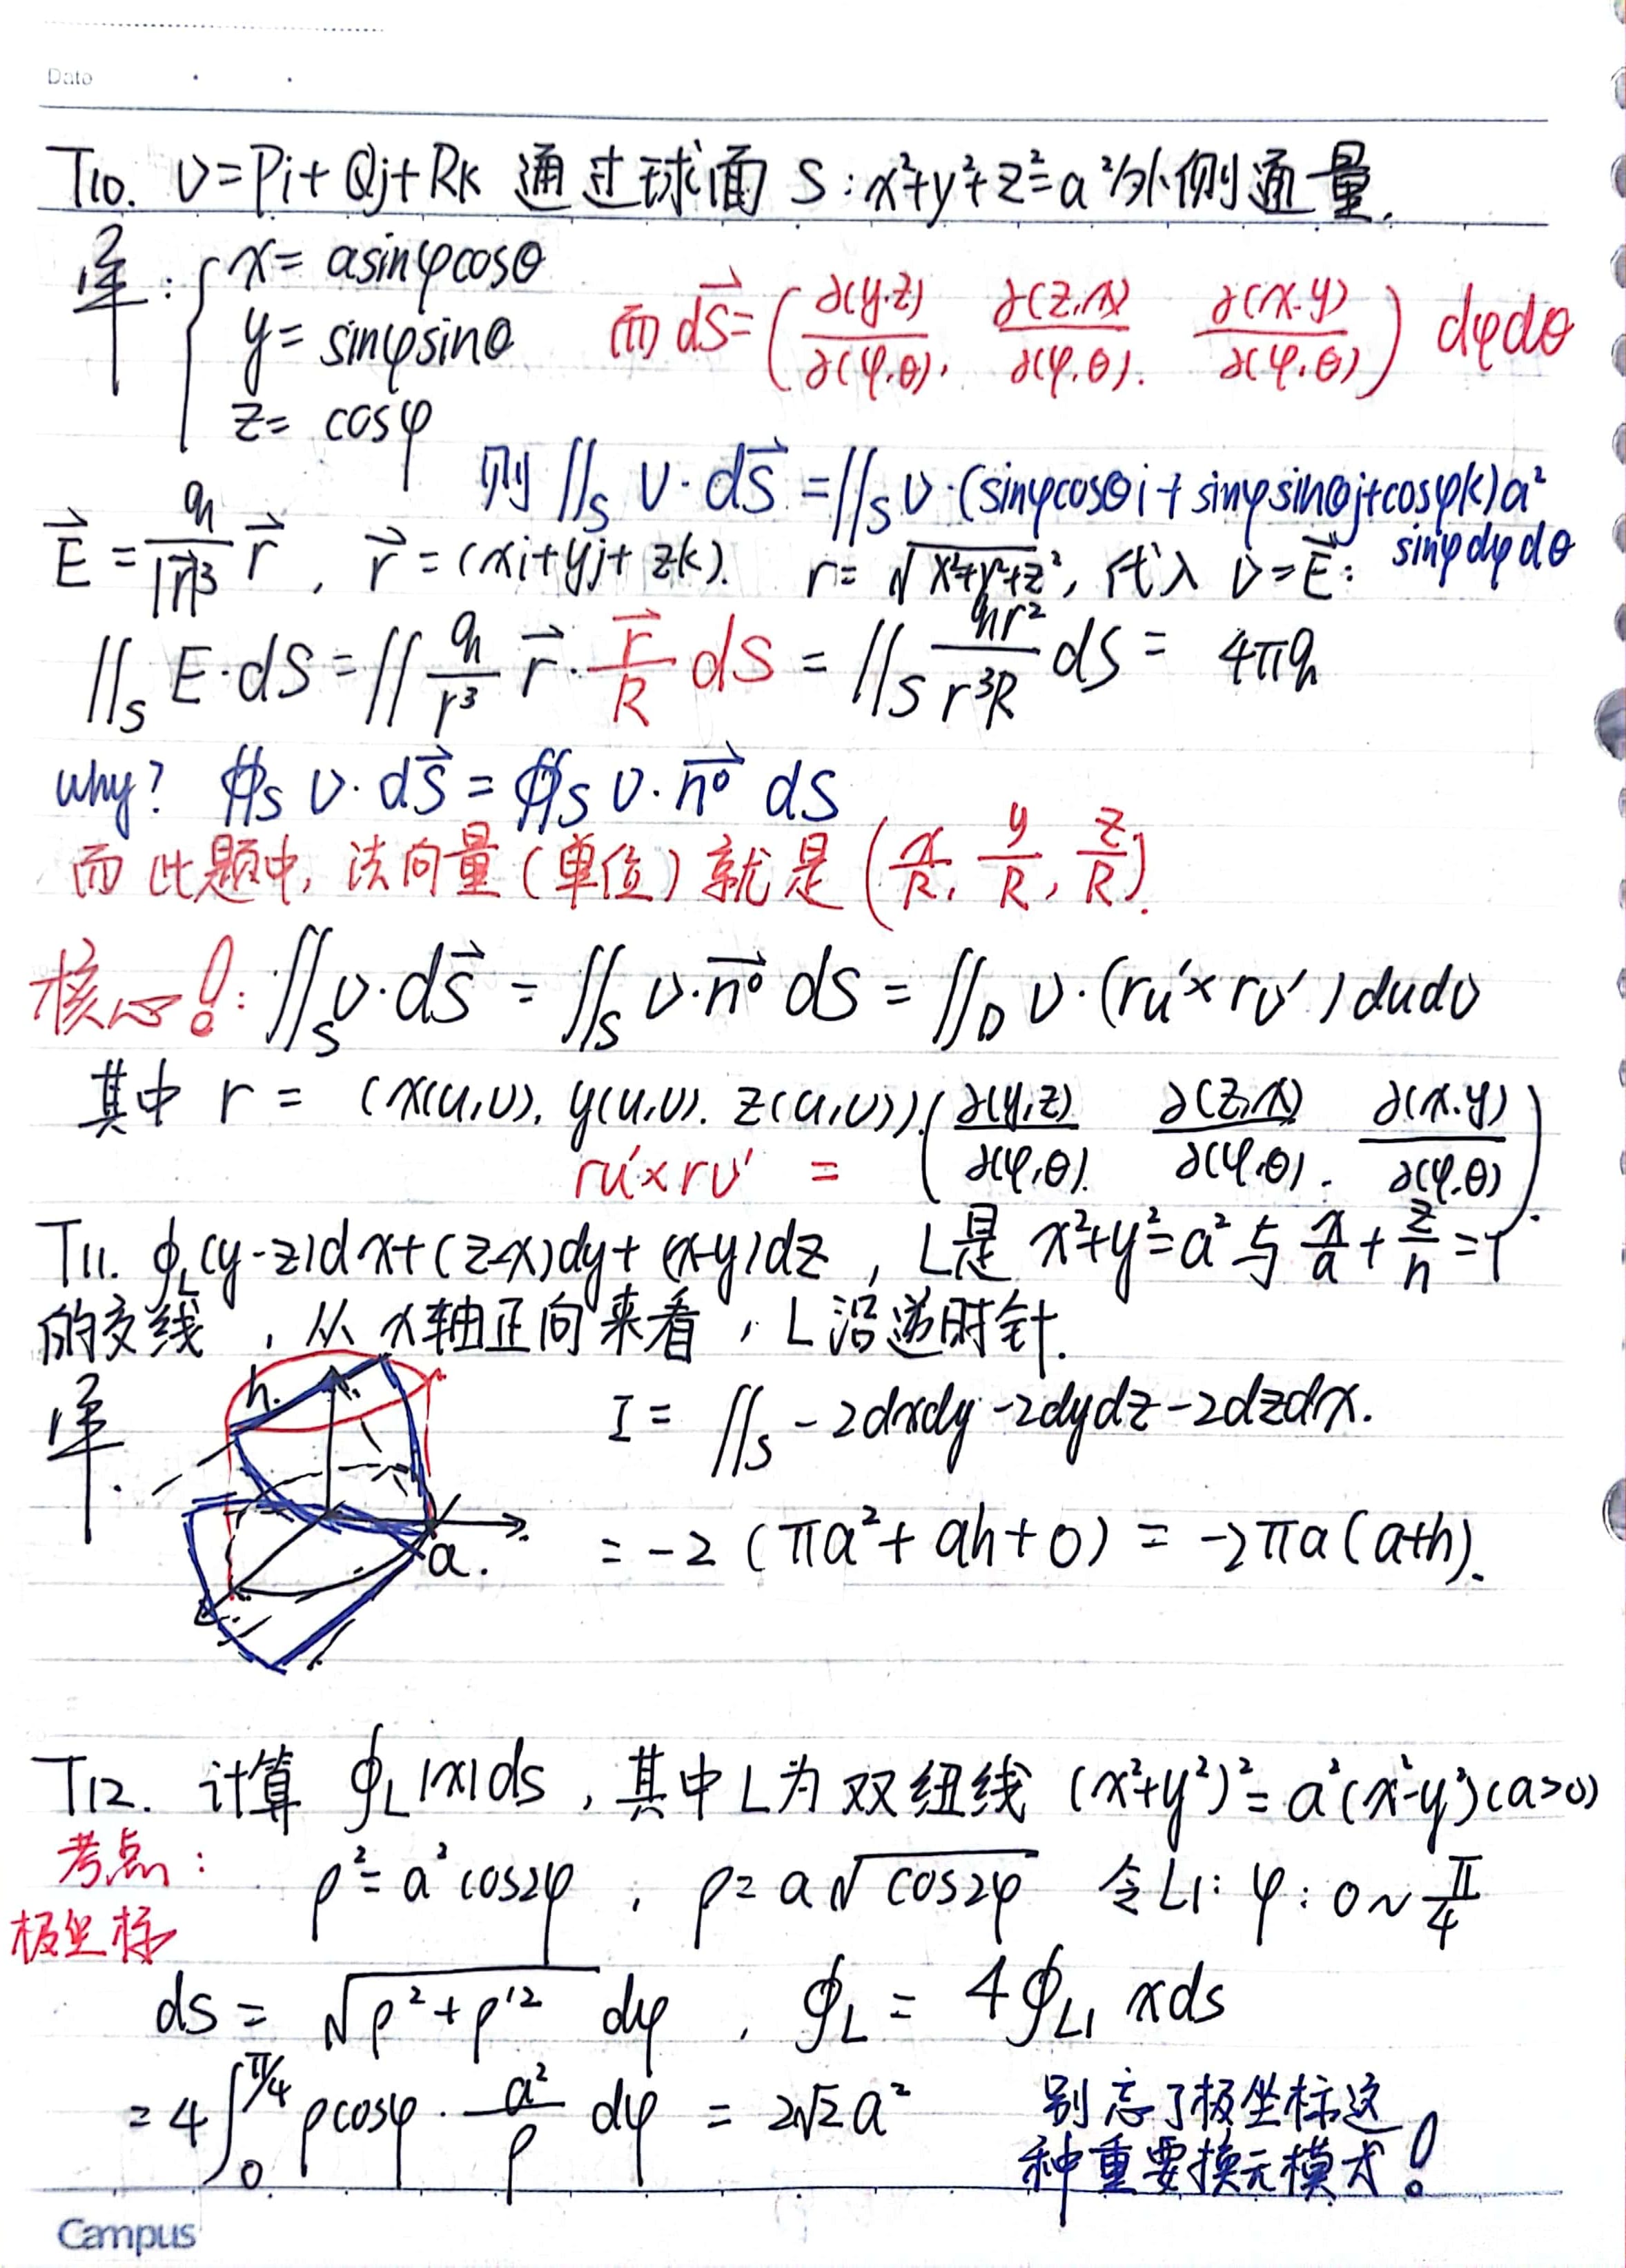 Date
T10. V=Pi+Qj+Rk 通过球面 S: x²+y²+z²=a²外侧通量.
解: { x= asinφcosθ
y= sinφsinθ
z= cosφ
而 dS⃗=(∂(y,z)/∂(φ,θ), ∂(z,x)/∂(φ,θ), ∂(x,y)/∂(φ,θ)) dφdθ
则 ∬_S V·dS⃗ =∬_S V·(sinφcosθi+sinφsinθj+cosφk)a²
sinφdφdθ
E⃗ = q/|r⃗|³ r⃗, r⃗=(xi+yj+zk). r=√(x²+y²+z²), 代入 V=E⃗:
∬_S E·dS=∬ q/r³ r⃗·r⃗/R dS = ∬_S qr²/r³R dS = 4πq
why? ∯_S V·dS⃗ = ∯_S V·n⁰⃗ dS
而此题中, 法向量(单位)就是(x/R, y/R, z/R).
核心!: ∬_S V·dS⃗ = ∬_S V·n⁰⃗ dS = ∬_D V·(ru'×rv')dudv
其中 r = (x(u,v), y(u,v), z(u,v)).
ru'×rv' = (∂(y,z)/∂(φ,θ), ∂(z,x)/∂(φ,θ), ∂(x,y)/∂(φ,θ)).
T11. ∮_L(y-z)dx+(z-x)dy+(x-y)dz, L是 x²+y²=a²与 x/a+z/h=1
的交线, 从x轴正向来看, L沿逆时针.
解.
h.
a.
I = ∬_S -2dxdy-2dydz-2dzdx.
= -2(πa²+ah+0) = -2πa(a+h).
T12. 计算 ∮_L|x|ds, 其中L为双纽线 (x²+y²)²=a²(x²-y²)(a>0)
考点:
极坐标
ρ²=a²cos2φ, ρ=a√cos2φ 令L1: φ: 0~π/4
ds = √(ρ²+ρ'²) dφ, ∮_L = 4∮_L1 xds
=4∫_0^π/4 ρcosφ·a²/ρ dφ = 2√2a²
别忘了极坐标这
种重要换元模式!
Campus